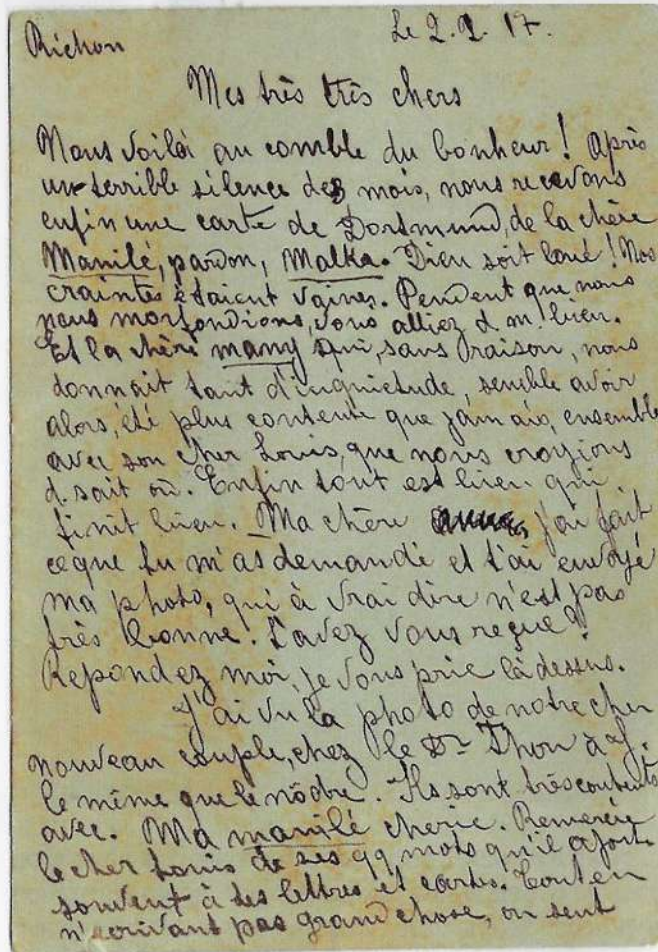 Richon Le 2.2.17.
Mes très très chers
Nous voilà au comble du bonheur! Après
un terrible silence de 3 mois, nous recevons
enfin une carte de Dortmund, de la chère
Manilé, pardon, Malka. Dieu soit loué! Nos
craintes étaient vaines. Pendent que nous
nous morfondions, vous alliez d. m. bien.
Et la chère many qui, sans raison, nous
donnait tant d'inquietude, semble avoir
alors, été plus contente que jamais, ensemble
avec son cher Louis, que nous croyions
d. sait où. Enfin tout est bien qui
finit bien. Ma chère j'ai fait
ce que tu m'as demandé et t'ai envoyé
ma photo, qui à vrai dire n'est pas
très bonne. L'avez vous reçue?
Repondez moi, je vous prie là dessus.
J'ai vu la photo de notre cher
nouveau couple, chez le Dr Thon à J.
le même que le nôdre. Ils sont très contents
avec. Ma manilé cherie. Remercie
le cher Louis de ses qq mots qu'il
souvent à tes lettres et cartes. Tout en
n'ecrivant pas grand chose, on sent